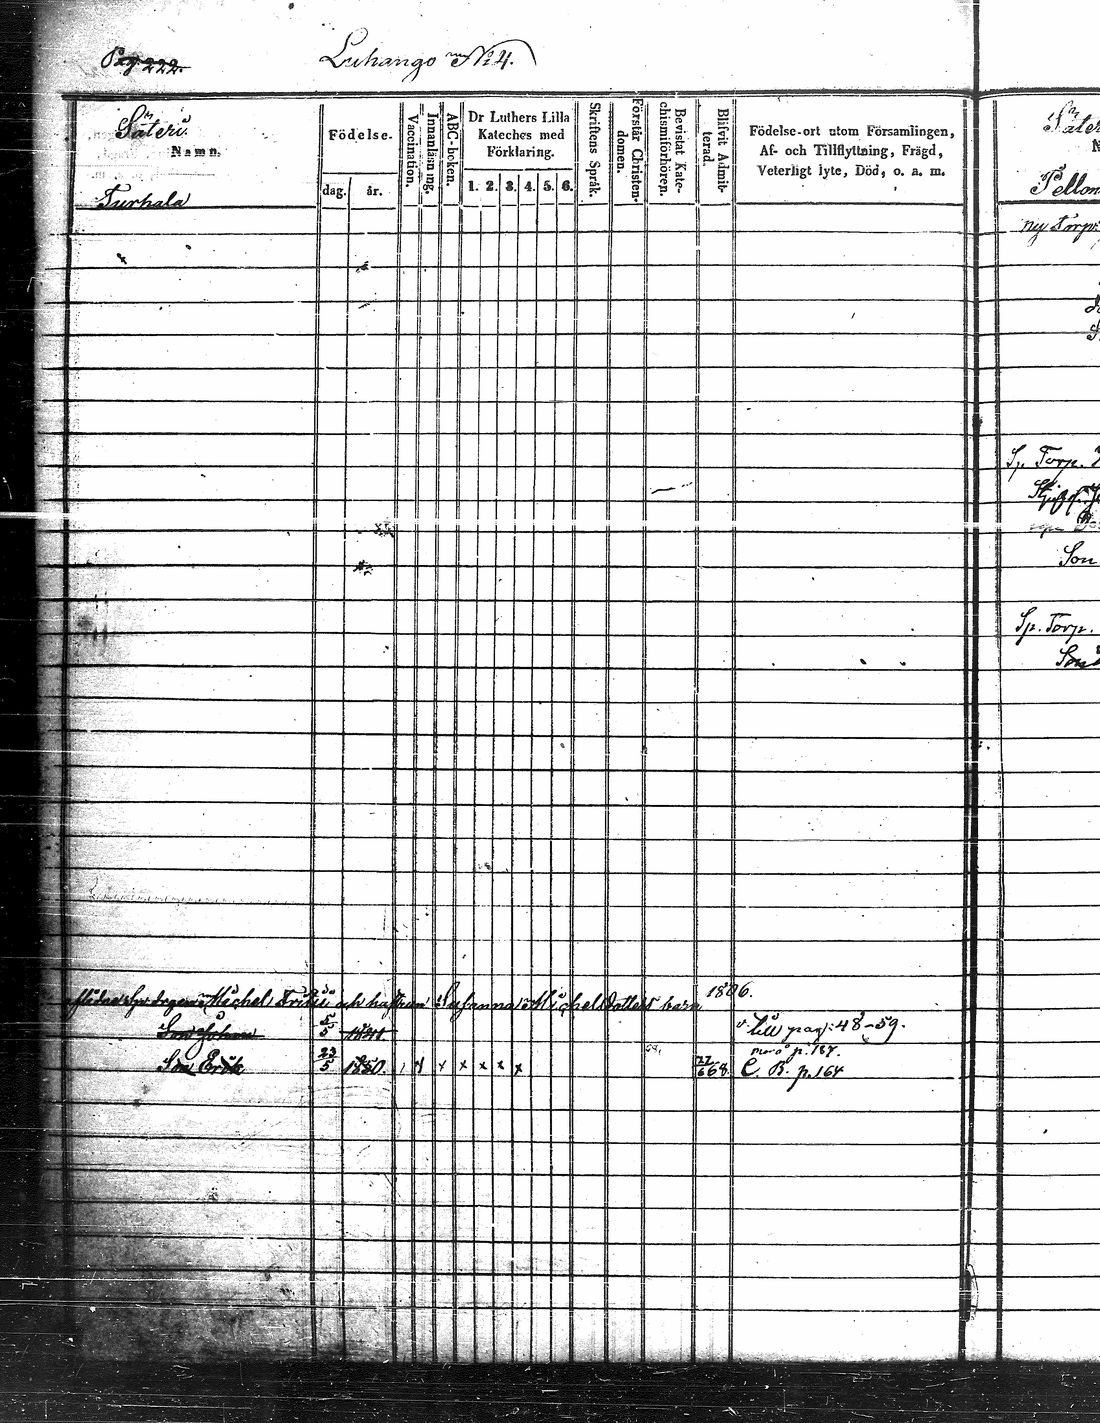 Pag 222.
Luhango my N:o 4.
Säteri.
Namn.
Turhala
Födelse.
dag. år.
Vaccination.
Innanläsning.
ABC-boken.
Dr Luthers Lilla
Kateches med
Förklaring.
1. 2. 3. 4. 5. 6.
Skriftens Språk.
Förstår Christen-
domen.
Bevistat Kate-
chismiförhören.
Blifvit Admit-
terad.
Födelse-ort utom Församlingen,
Af- och Tillflyttning, Frägd,
Veterligt lyte, Död, o. a. m.
Säter
N
Pellon
ny Torp
Sp. Torp.
Son
Sp. Torp.
Son
Michel och Susanna Michelsdotters barn 1806.
Son Johan 5/5 1841 till pag: 48-59.
p. 187.
Son Erik 23/5 1850. x x x x x x 22/6 68. C. B. p. 164